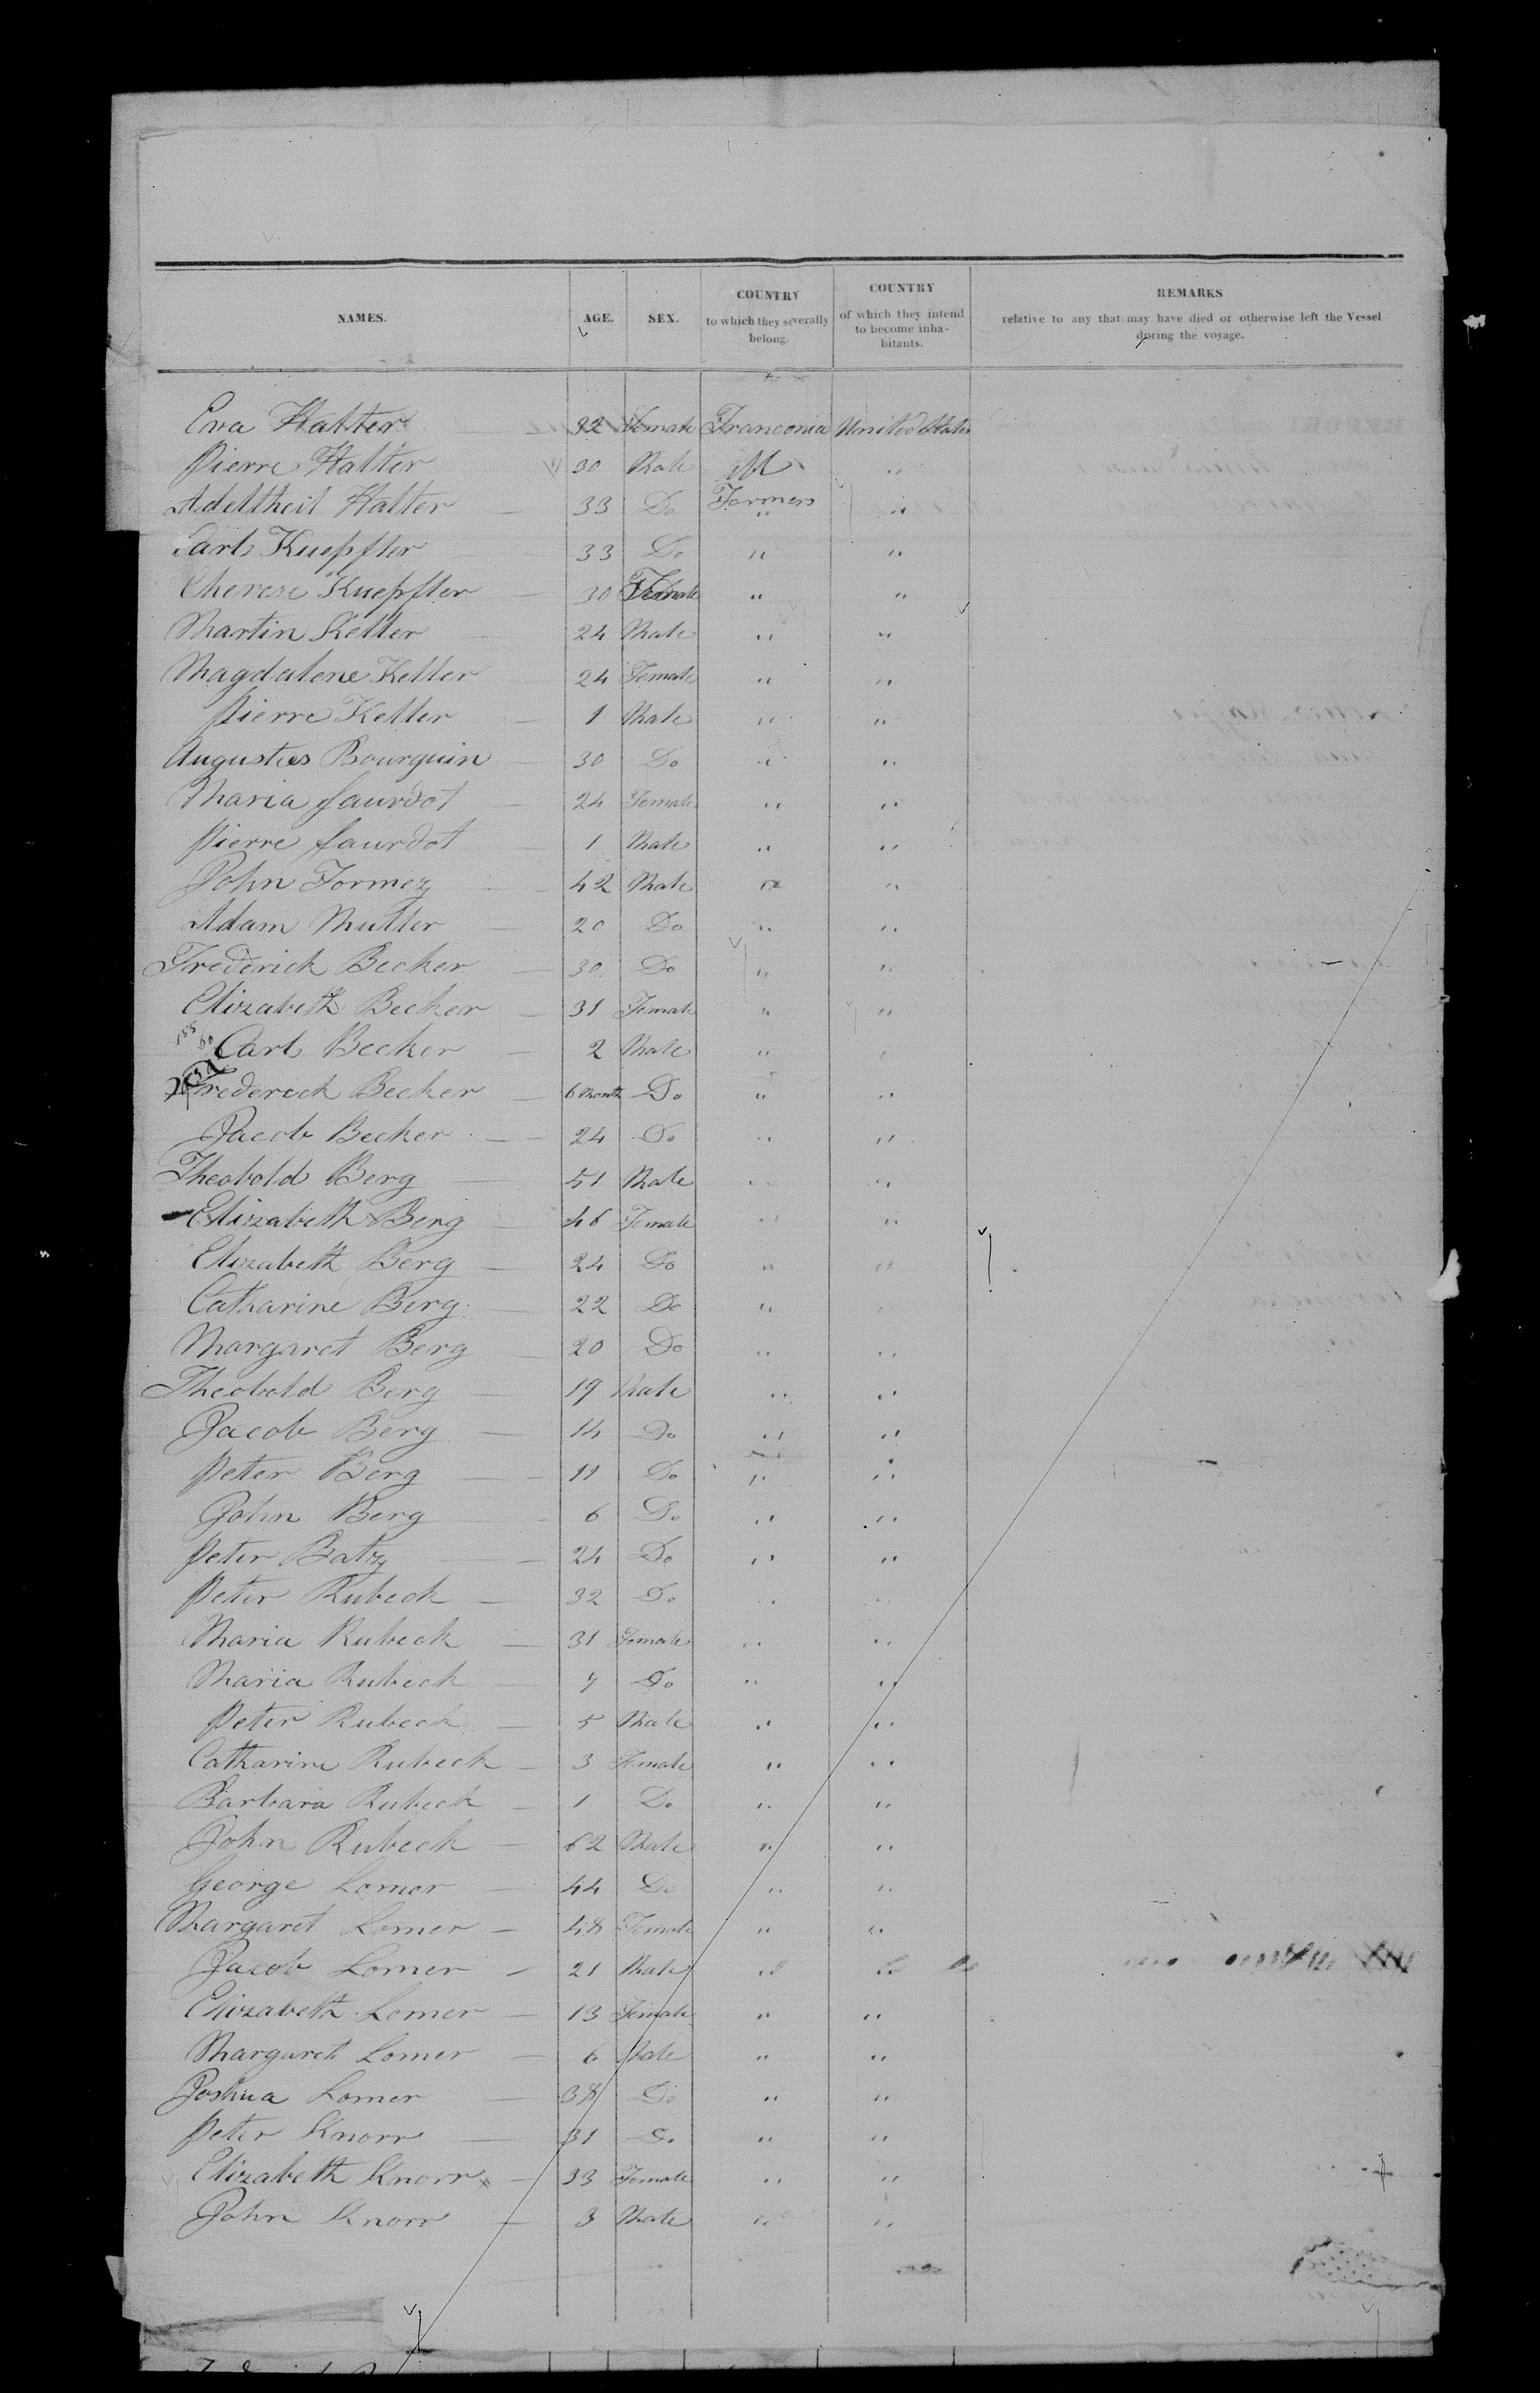 NAMES. AGE. SEX. COUNTRY to which they severally belong. COUNTRY of which they intend to become inhabitants. REMARKS relative to any that may have died or otherwise left the Vessel during the voyage.
Eva Halter 32 Female Franconia United States
Pierre Halter 30 Male "
Adeltheit Halter 33 Do Farmers " "
Carl Kuepfler 33 Do " "
Therese Kuepfler 30 Female " "
Martin Keller 24 Male " "
Magdalene Keller 24 Female " "
Pierre Keller 1 Male " "
Augustus Bourguin 30 Do " "
Maria Jaurdot 24 Female " "
Pierre Jaurdot 1 Male " "
John Formez 42 Male " "
Adam Muller 20 Do " "
Frederick Becker 30 Do " "
Elizabeth Becker 31 Female " "
Carl Becker 2 Male " "
Frederick Becker 6 Month Do " "
Jacob Becker 24 Do " "
Theobold Berg 51 Male " "
Elizabeth Berg 46 Female " "
Elizabeth Berg 24 Do " "
Catharine Berg 22 Do "
Margaret Berg 20 Do " "
Theobold Berg 19 Male " "
Jacob Berg 14 Do " "
Peter Berg 11 Do " "
John Berg 6 Do " "
Peter Batz 24 Do " "
Peter Rubeck 32 Do " "
Maria Rubeck 31 Female " "
Maria Rubeck 7 Do " "
Peter Rubeck 5 Male " "
Catharine Rubeck 3 Female " "
Barbara Rubeck 1 Do " "
John Rubeck 62 Male " "
George Lomer 44 Do " "
Margaret Lomer 48 Female " "
Jacob Lomer 21 Male " "
Elizabeth Lomer 13 Female " "
Margaret Lomer 6 Male " "
Joshua Lomer 38 Do " "
Peter Knorr 31 Do " "
Elizabeth Knorr 33 Female " "
John Knorr 3 Male " "